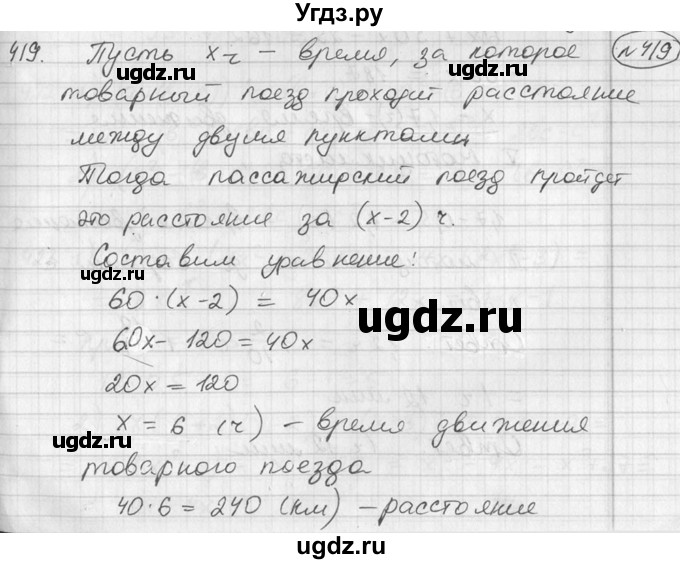 Угдз.ру
419. Пусть х ч – время, за которое №419
товарный поезд проходит расстояние
между двумя пунктами
Тогда пассажирский поезд пройдет
это расстояние за (х-2) ч.
Составим уравнение:
60·(х-2) = 40х
60х-120=40х
20х=120
х=6 (ч) – время движения
товарного поезда
40·6=240 (км) – расстояние
ugdz.ru
ugdz.ru
ugdz.ru
ugdz.ru
ugdz.ru
ugdz.ru
ugdz.ru
ugdz.ru